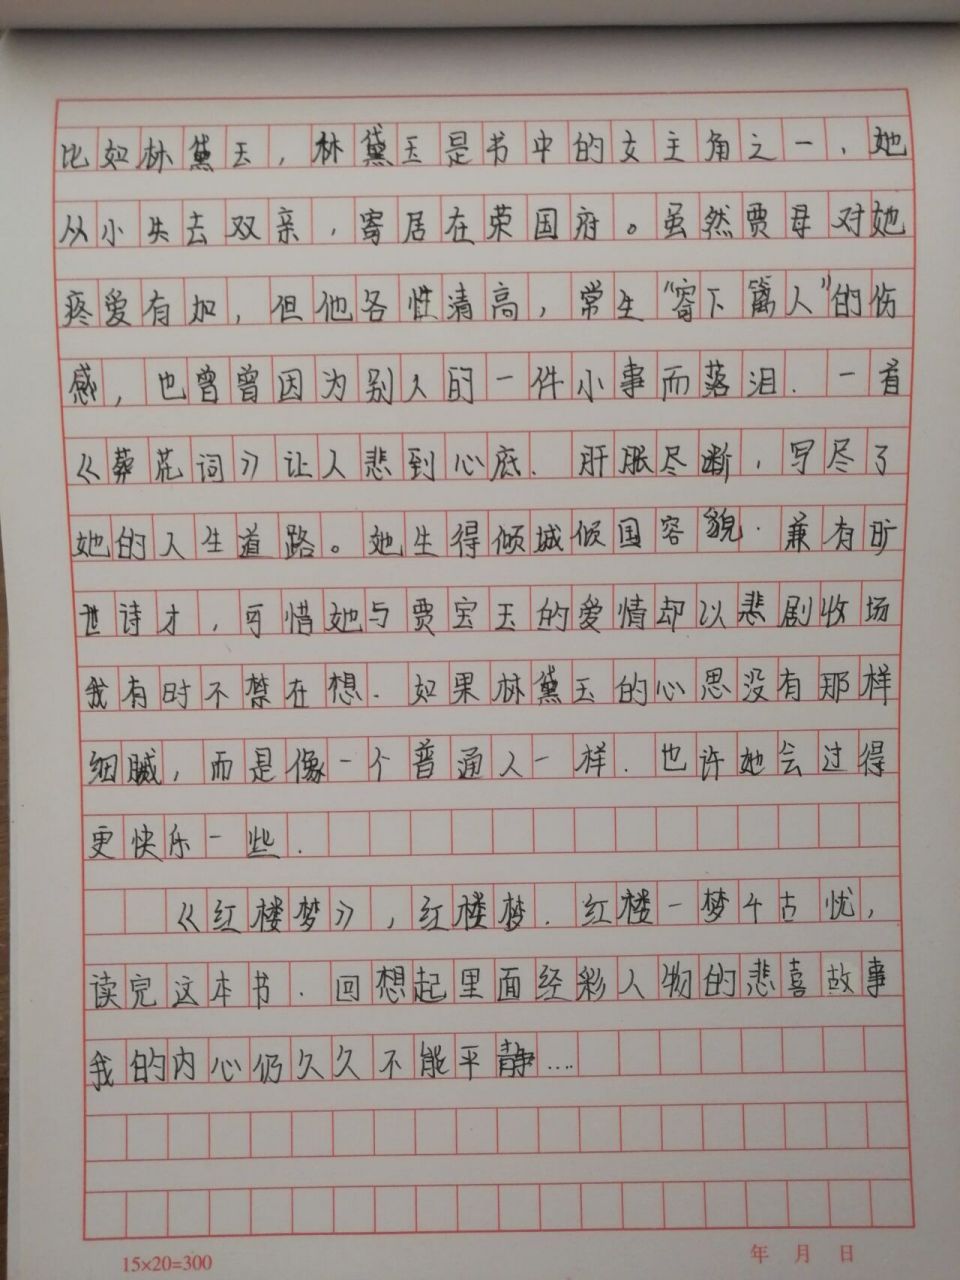 比如林黛玉，林黛玉是书中的女主角之一，她
从小失去双亲，寄居在荣国府。虽然贾母对她
疼爱有加，但他各性清高，常生“寄下篱人”的伤
感，也曾曾因为别人的一件小事而落泪．一首
《葬花词》让人悲到心底．肝胀尽断，写尽了
她的人生道路。她生得倾城倾国容貌．兼有旷
世诗才，可惜她与贾宝玉的爱情却以悲剧收场
我有时不禁在想．如果林黛玉的心思没有那样
细腻，而是像一个普通人一样．也许她会过得
更快乐一些．
《红楼梦》，红楼梦．红楼一梦千古忧，
读完这本书．回想起里面经彩人物的悲喜故事
我的内心仍久久不能平静…．
15×20=300
年 月 日